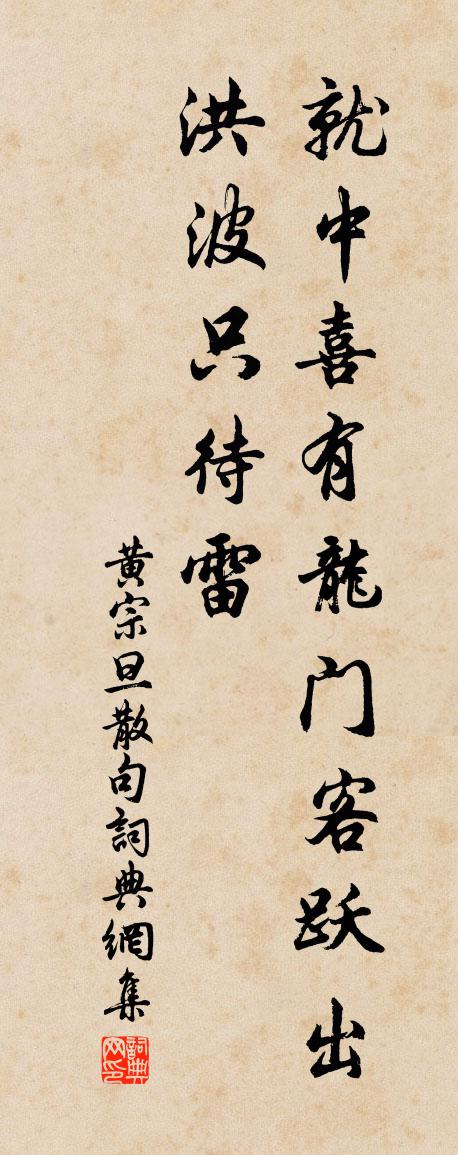 就中喜有龍门客跃出
洪波只待雷
黄宗旦散句詞典網集
詞典网印